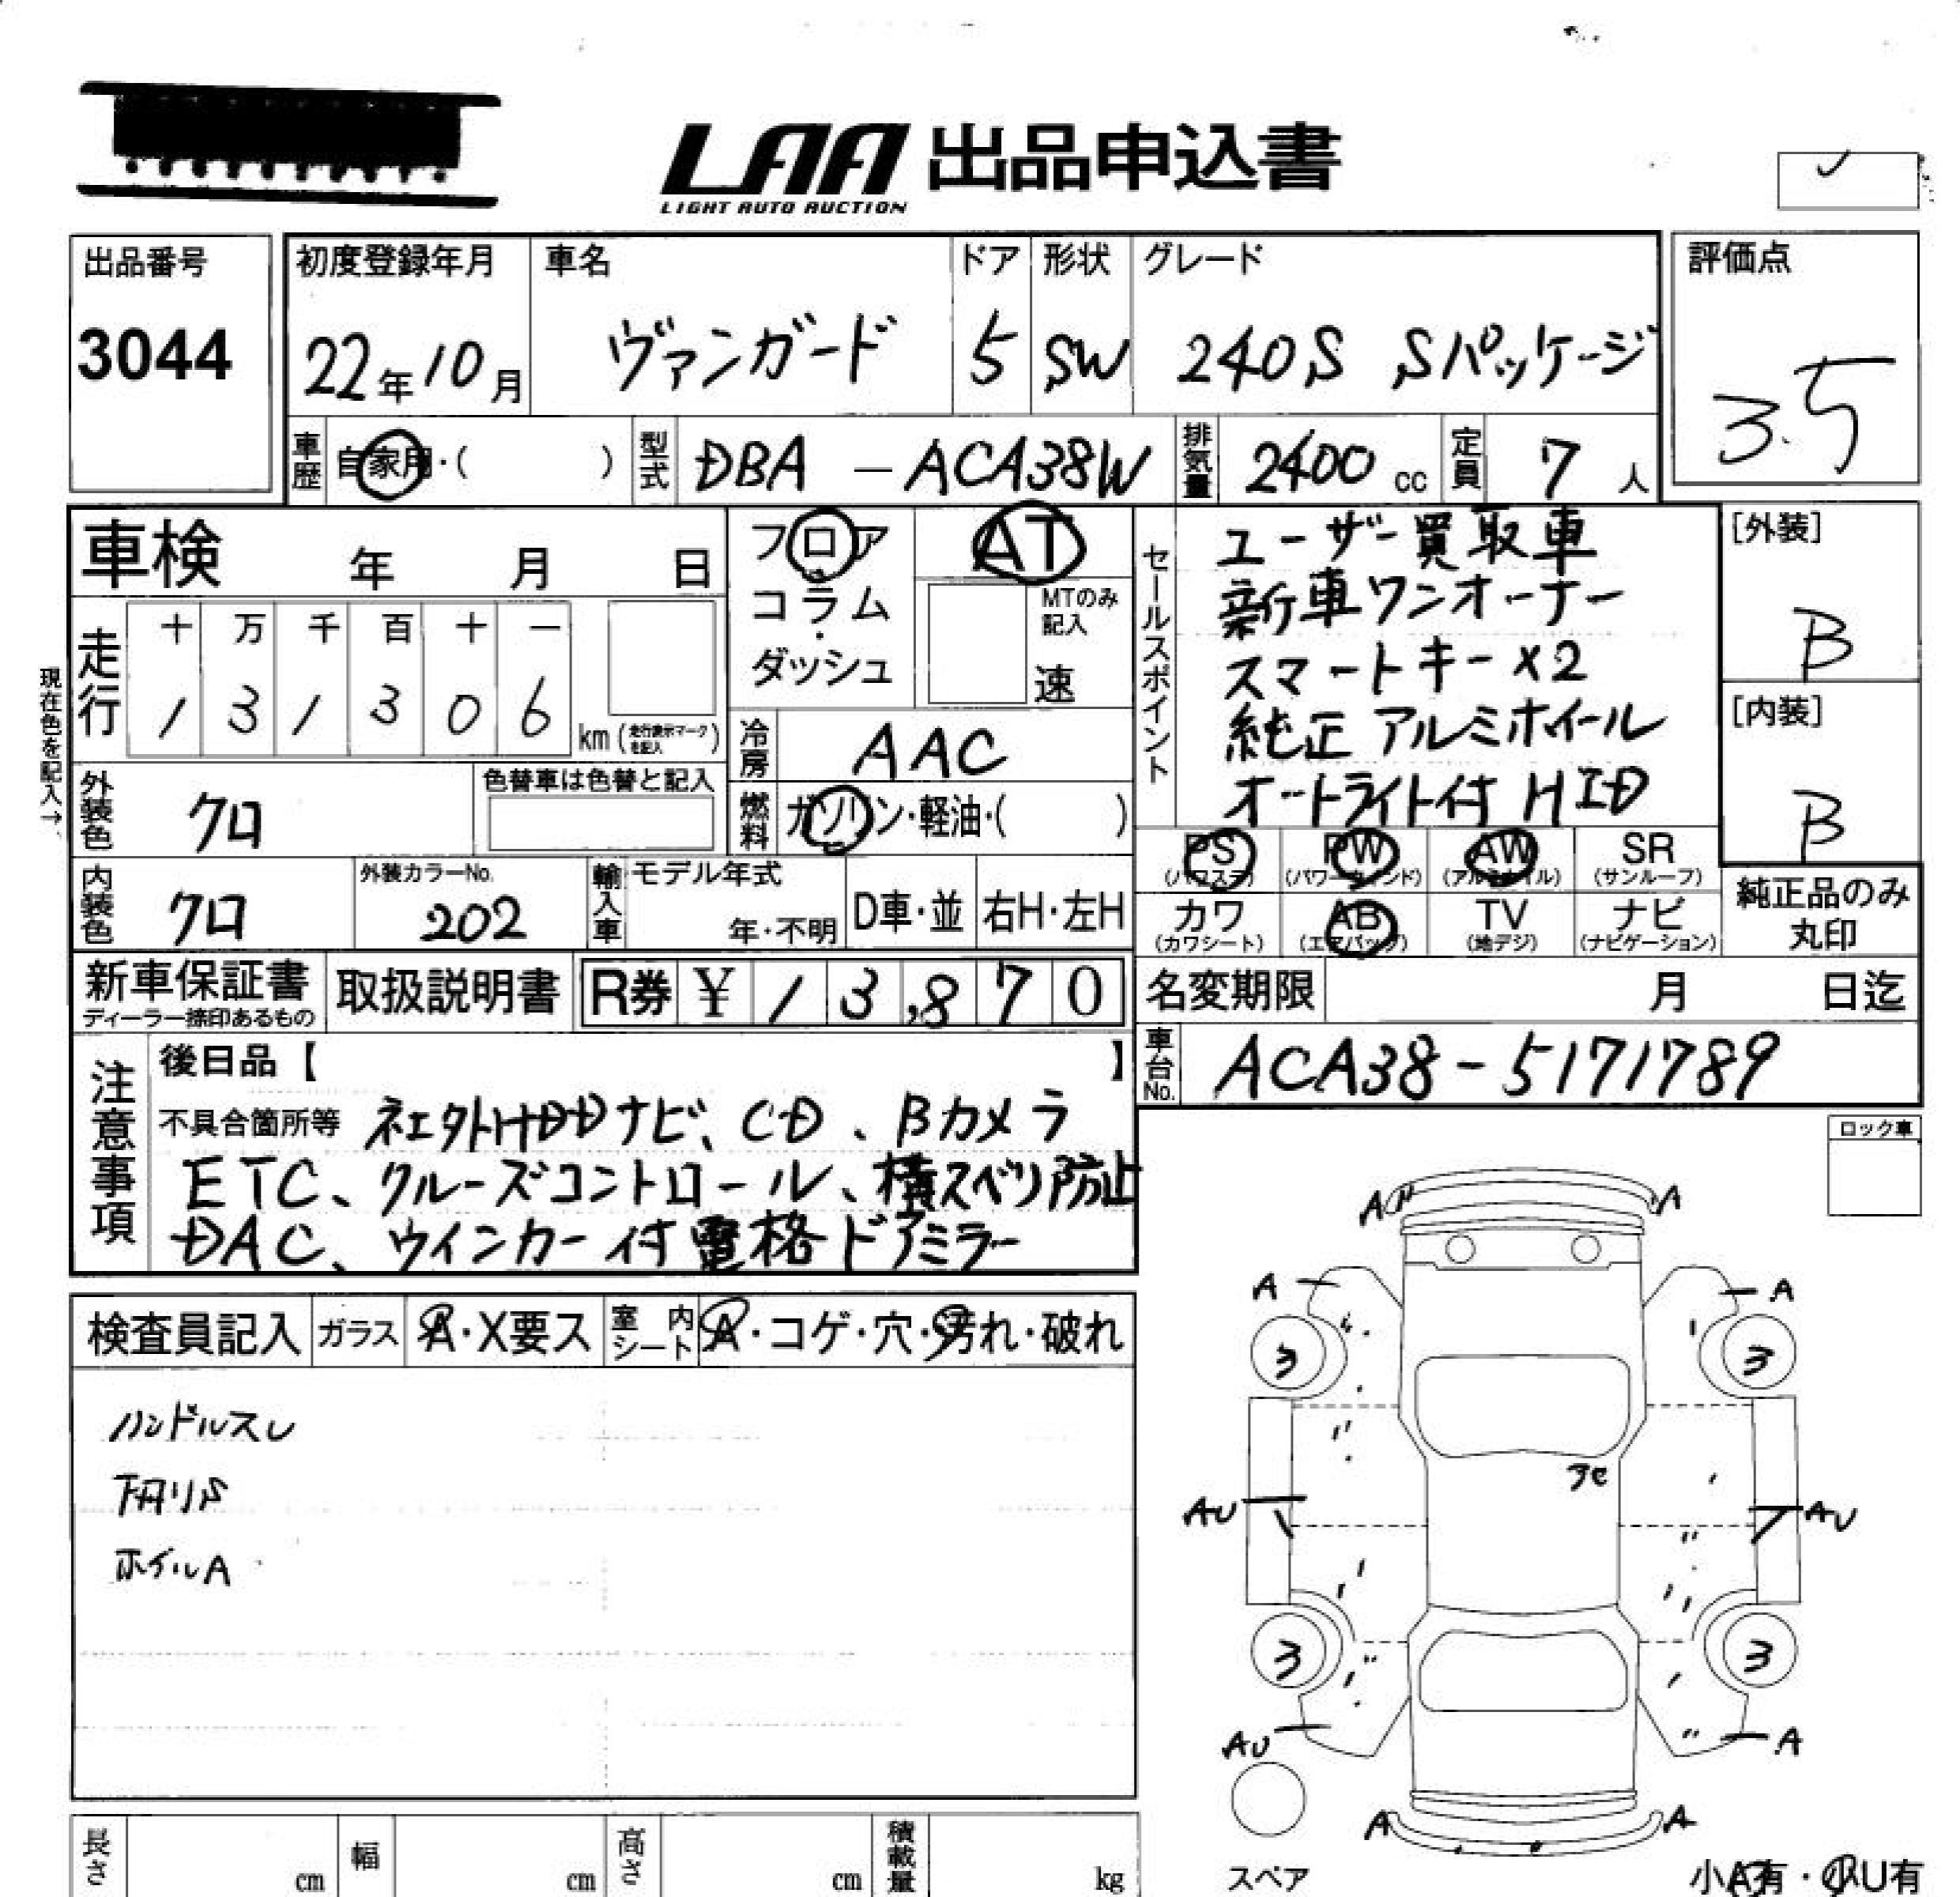 LAA 出品申込書
LIGHT AUTO AUCTION
出品番号
3044
初度登録年月
22年10月
車名
ヴァンガード
ドア
5
形状
SW
グレード
240S Sパッケージ
評価点
3.5
車歴
自家用・( )
型式
DBA - ACA38W
排気量
2400 cc
定員
7 人
車検 年 月 日
フロア・コラム・ダッシュ
AT
MTのみ記入
速
セールスポイント
ユーザー買取車
新車ワンオーナー
スマートキー×2
純正アルミホイール
オートライト付 HID
[外装]
B
[内装]
B
現在色を記入→
走行
十 万 千 百 十 一
1 3 1 3 0 6 km (走行表示マークを記入)
冷房
AAC
燃料
ガソリン・軽油・( )
外装色
クロ
色替車は色替と記入
内装色
クロ
外装カラーNo.
202
輸入車
モデル年式
年・不明
D車・並
右H・左H
PS
(パワステ)
PW
(パワーウィンド)
AW
(アルミホイル)
SR
(サンルーフ)
カワ
(カワシート)
AB
(エアバッグ)
TV
(地デジ)
ナビ
(ナビゲーション)
純正品のみ
丸印
新車保証書
ディーラー捺印あるもの
取扱説明書
R券 ¥ 13,870
名変期限 月 日迄
車台No.
ACA38-5171789
注意事項
後日品【 】
不具合箇所等 社外HDDナビ、CD、Bカメラ
ETC、クルーズコントロール、横スベリ防止
DAC、ウインカー付電格ドアミラー
ロック車
検査員記入
ガラス
A・X要ス
室内シート
A・コゲ・穴・汚れ・破れ
ハンドルスレ
下廻りS
ホイルA
A A
A A
3 3
AU AU
3 3
AU A
A A
スペア
小A有・小U有
長さ cm
幅 cm
高さ cm
積載量 kg